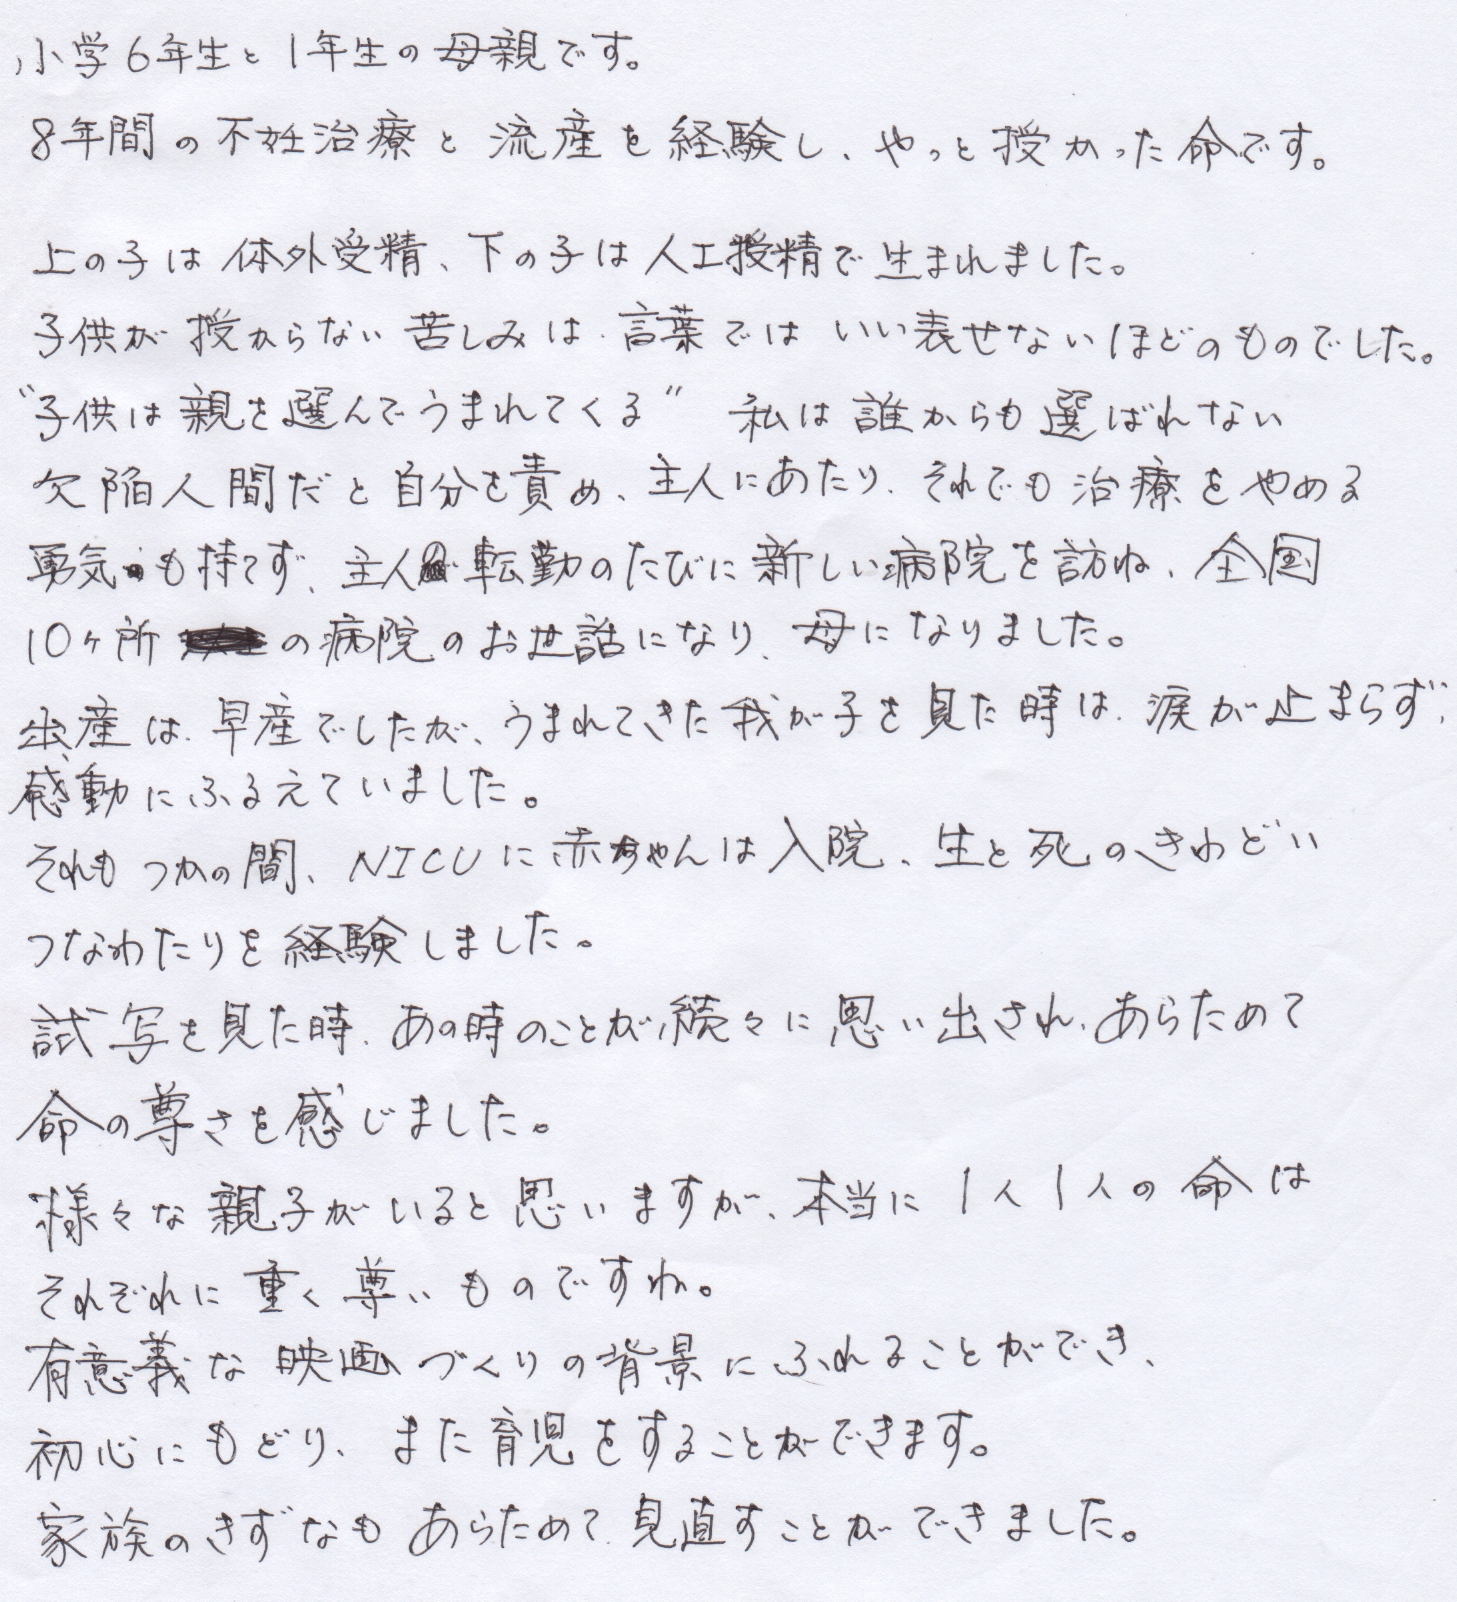 小学6年生と1年生の母親です。
8年間の不妊治療と流産を経験し、やっと授かった命です。
上の子は体外受精、下の子は人工授精で生まれました。
子供が授からない苦しみは、言葉ではいい表せないほどのものでした。
"子供は親を選んでうまれてくる" 私は誰からも選ばれない
欠陥人間だと自分を責め、主人にあたり、それでも治療をやめる
勇気も持てず、主人の転勤のたびに新しい病院を訪ね、全国
10ヶ所の病院のお世話になり、母になりました。
出産は、早産でしたが、うまれてきた我が子を見た時は、涙が止まらず、
感動にふるえていました。
それもつかの間、NICUに赤ちゃんは入院、生と死のきわどい
つなわたりを経験しました。
試写を見た時、あの時のことが続々に思い出され、あらためて
命の尊さを感じました。
様々な親子がいると思いますが、本当に1人1人の命は
それぞれに重く尊いものですね。
有意義な映画づくりの背景にふれることができ、
初心にもどり、また育児をすることができます。
家族のきずなもあらためて見直すことができました。